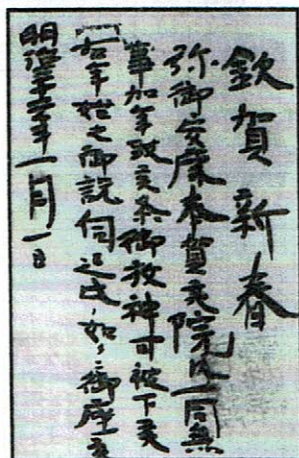 欽賀新春
弥御安康奉賀候院内一同無
事加年致候条御放神可被下候
右年始之御祝伺迄氏如御座候
明治十六年一月一日